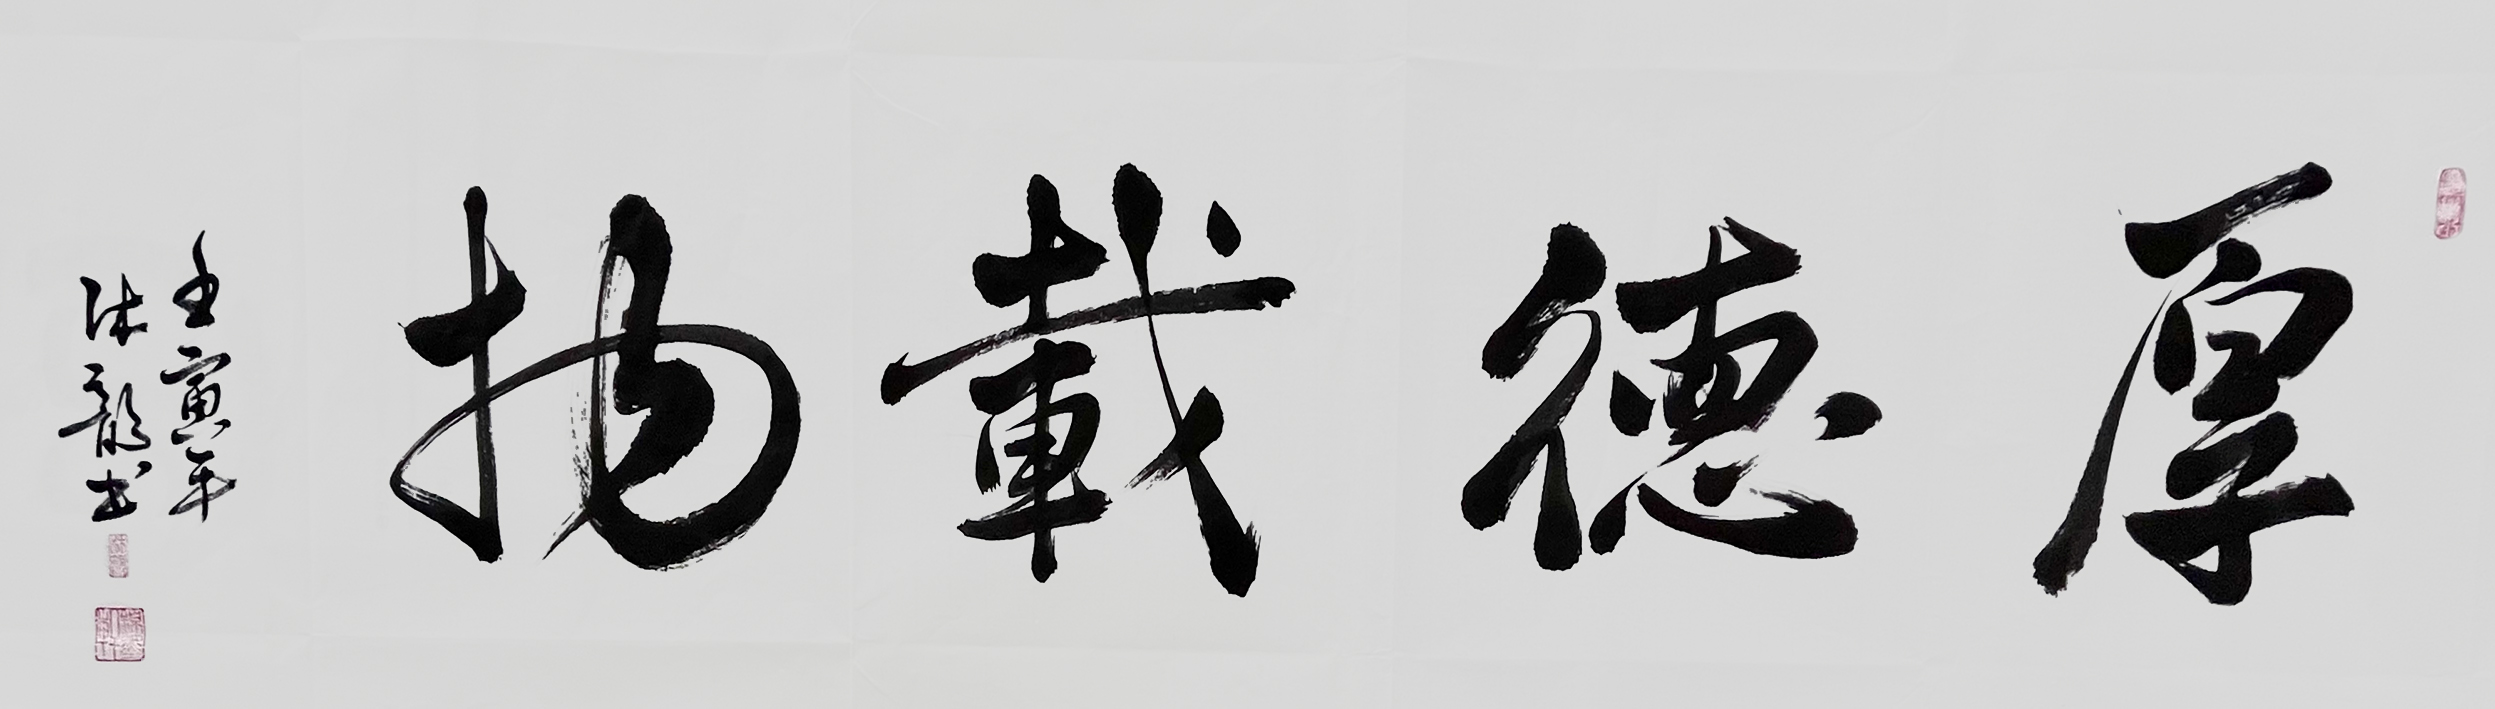 厚德載物
壬寅年
沐龍书